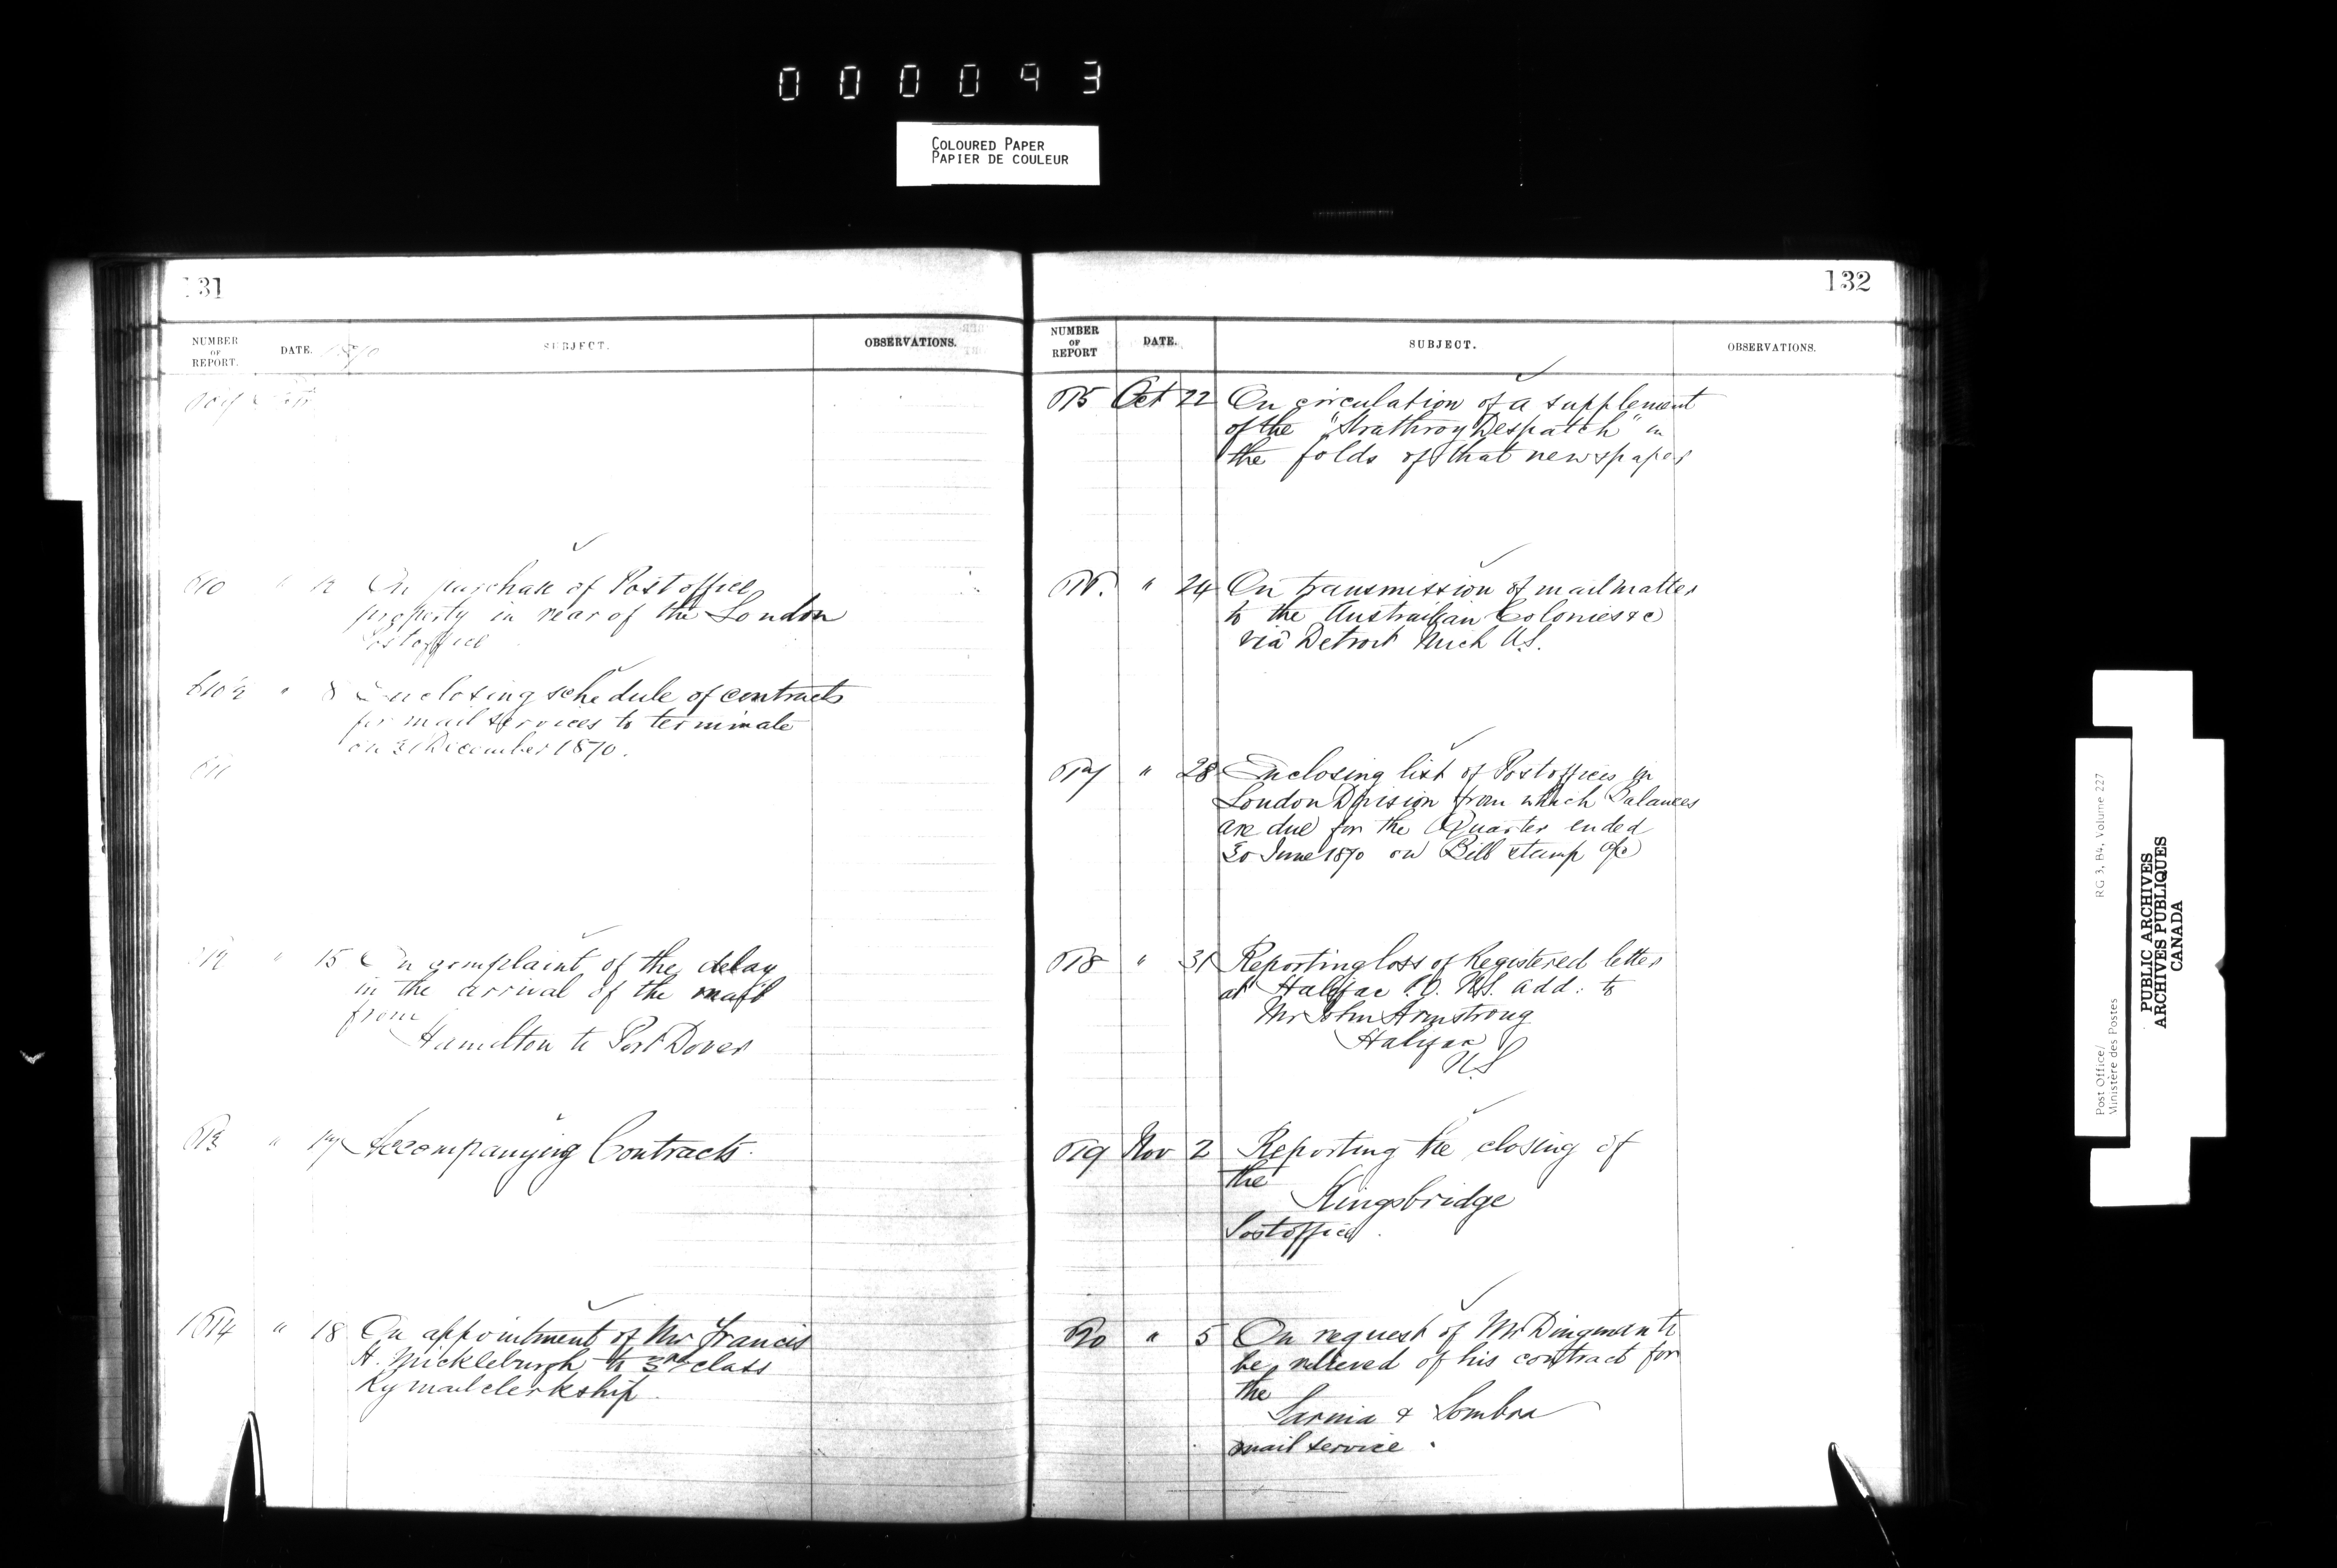 000093
COLOURED PAPER
PAPIER DE COULEUR
131
NUMBER OF REPORT. DATE. 1870 SUBJECT. OBSERVATIONS.
610 " 12 On purchase of Postoffice
property in rear of the London
Postoffice
610½ " 8 Enclosing schedule of contracts
for mail services to terminate
on 31 December 1870.
611
612 " 15 On complaint of the delay
in the arrival of the mail
from
Hamilton to Port Dover
613 " 17 Accompanying Contracts.
614 " 18 On appointment of Mr Francis
H. Mickleburgh to 3rd class
Ry mail clerkship.
132
NUMBER OF REPORT DATE. SUBJECT. OBSERVATIONS.
615 Oct 22 On circulation of a supplement
of the "Strathroy Despatch" in
the folds of that newspaper
616. " 24 On transmission of mail matter
to the Australian Colonies &c
via Detroit Mich U.S.
617 " 28 Enclosing list of Postoffices in
London Division from which Balances
are due for the Quarter ended
30 June 1870 on Bill stamp a/c
618 " 31 Reporting loss of Registered letter
at Halifax P.O. N.S. add: to
Mr John Armstrong
Halifax
N.S
619 Nov 2 Reporting the closing of
the
Kingsbridge
Postoffice.
620 " 5 On request of Mr Dingman to
be relieved of his contract for
the
Sarnia & Sombra
mail service.
Post Office/ RG 3, B4, Volume 227
Ministère des Postes
PUBLIC ARCHIVES
ARCHIVES PUBLIQUES
CANADA